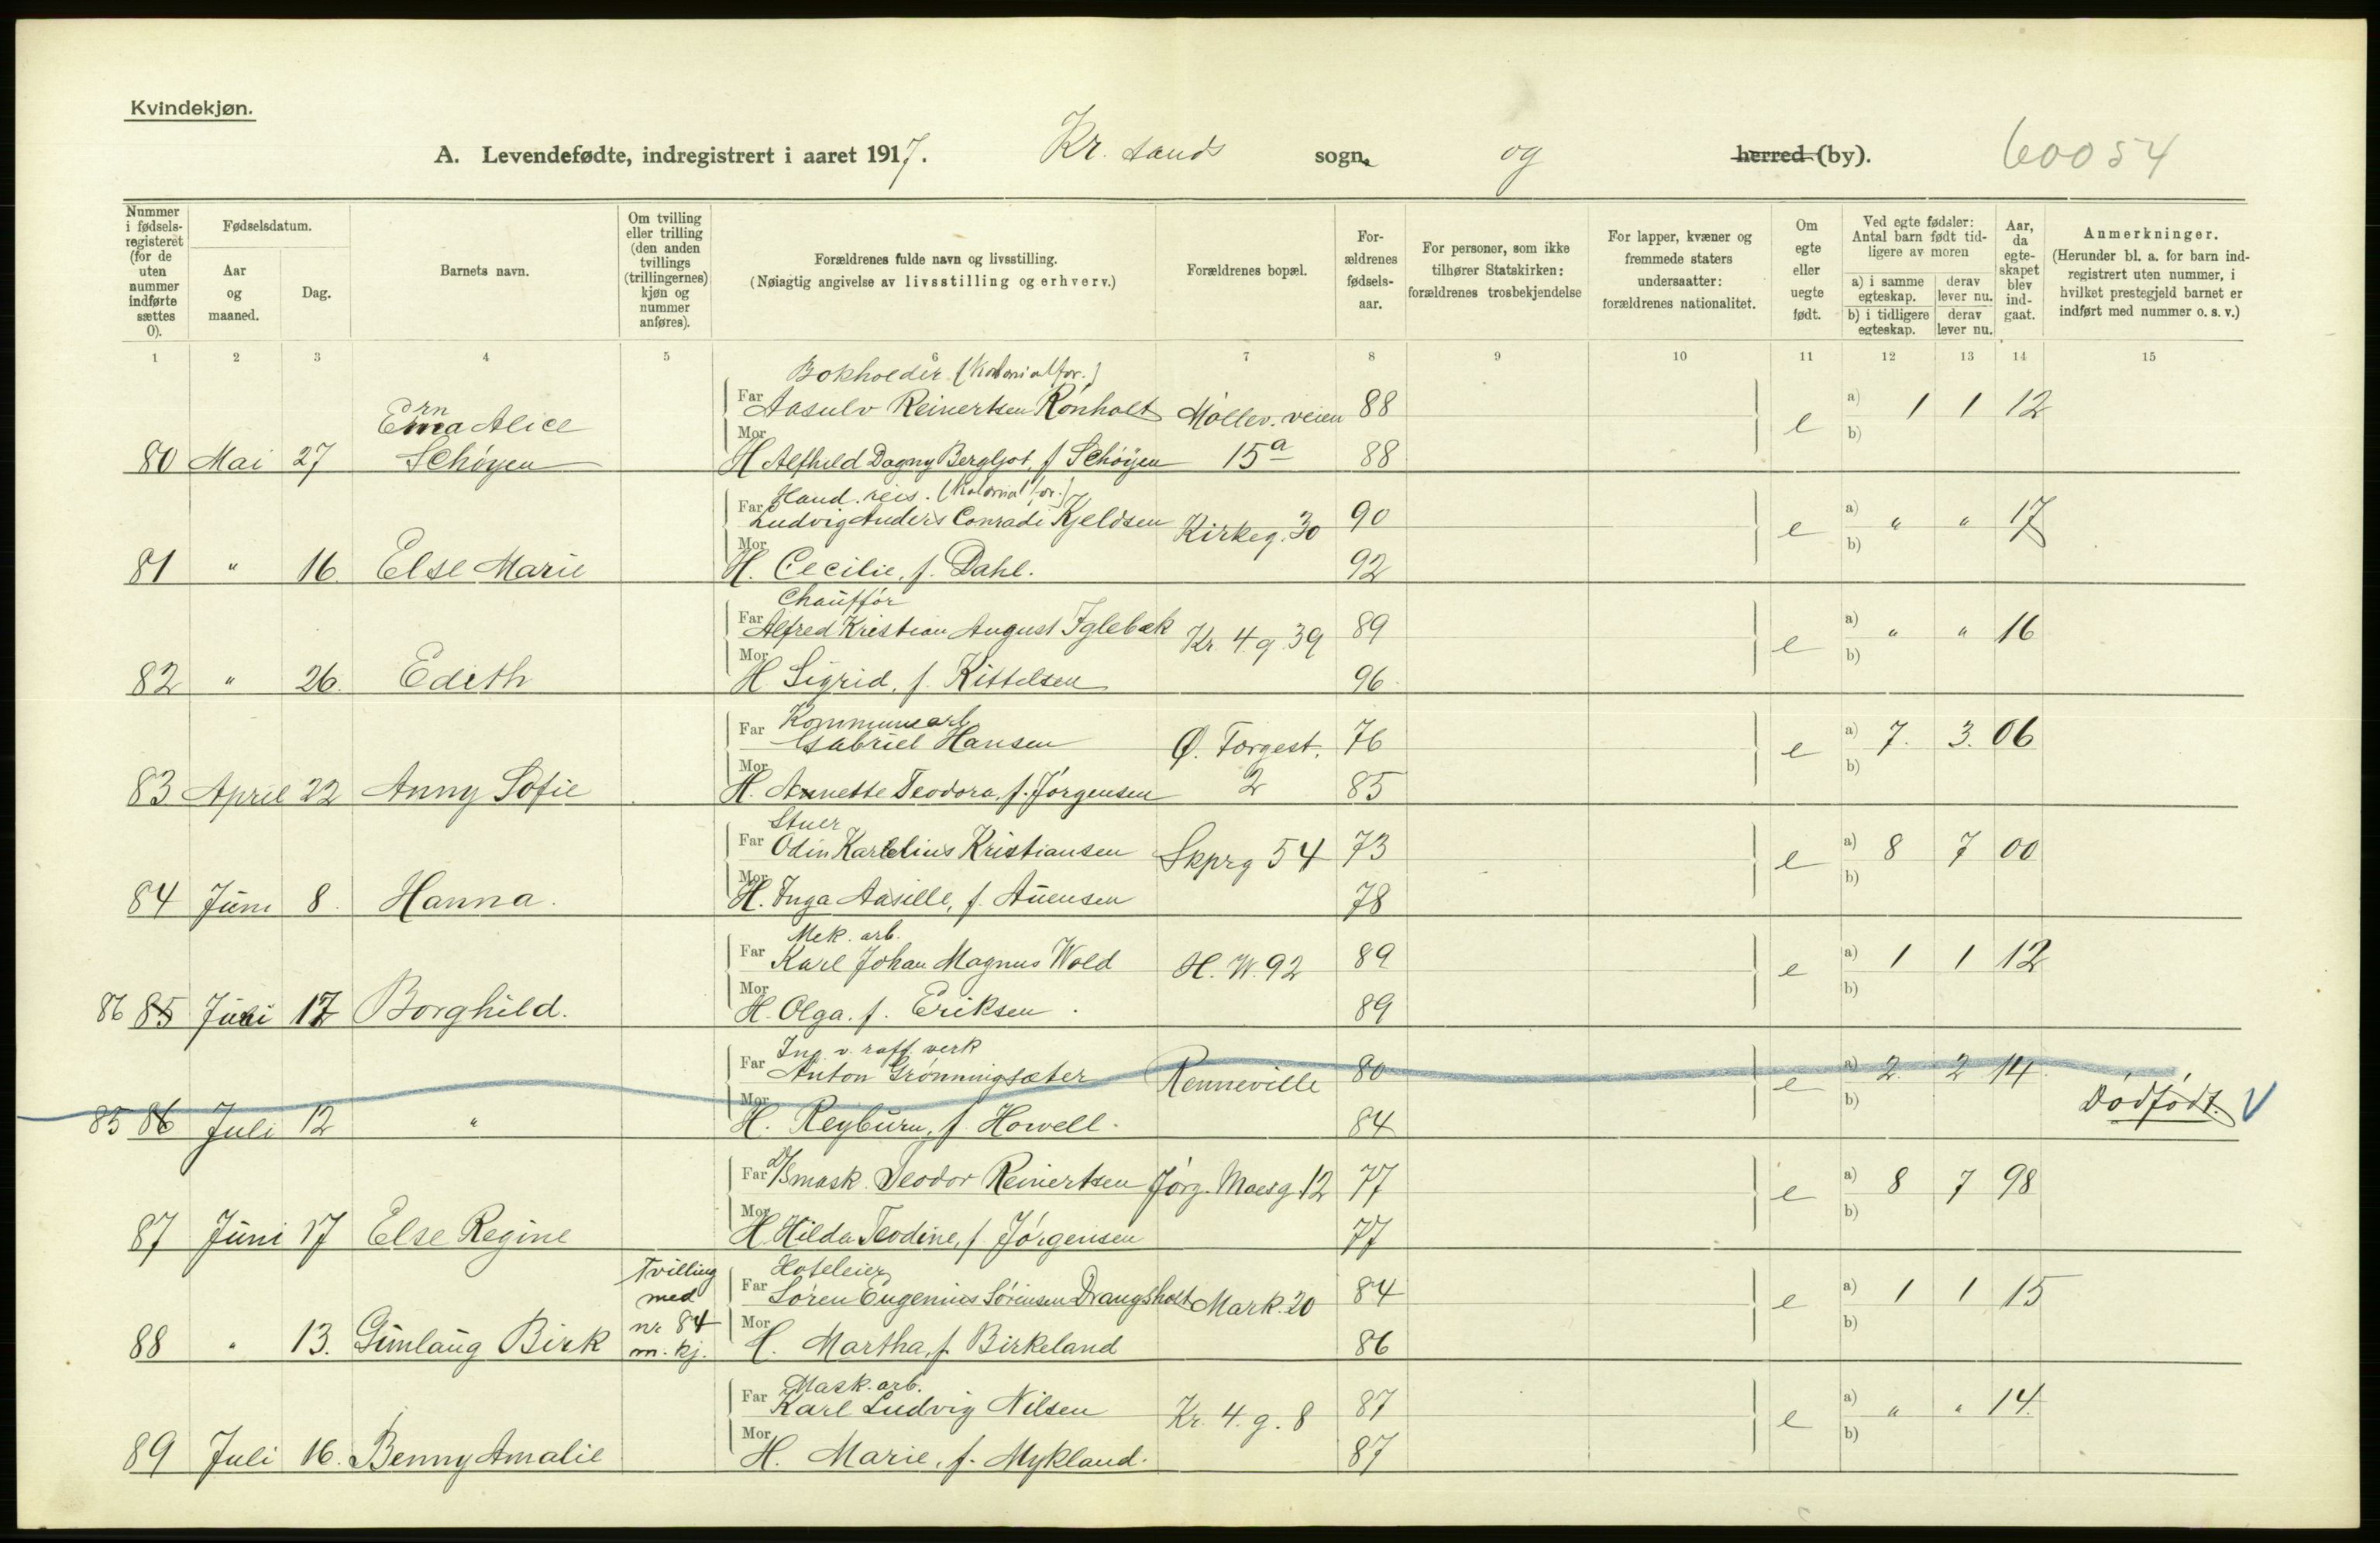 Kvindekjøn.
A. Levendefødte, indregistrert i aaret 1917. Kr. sands sogn. og herred (by). 60054
Nummer i fødsels-registeret (for de uten nummer indførte sættes 0).
Fødselsdatum.
Aar og maaned.
Dag.
Barnets navn.
Om tvilling eller trilling (den anden tvillings (trillingernes) kjøn og nummer anføres).
Forældrenes fulde navn og livsstilling.
(Nøiagtig angivelse av livsstilling og erhverv.)
Forældrenes bopæl.
For-ældrenes fødsels-aar.
For personer, som ikke tilhører Statskirken: forældrenes trosbekjendelse
For lapper, kvæner og fremmede staters undersaatter: forældrenes nationalitet.
Om egte eller uegte født.
Ved egte fødsler: Antal barn født tid-ligere av moren
a) i samme egteskap. derav lever nu.
b) i tidligere egteskap. derav lever nu.
Aar, da egte-skapet blev ind-gaat.
Anmerkninger.
(Herunder bl. a. for barn ind-registrert uten nummer, i hvilket prestegjeld barnet er indført med nummer o. s. v.)
1 2 3 4 5 6 7 8 9 10 11 12 13 14 15
Bokholder (Kolonialfor.)
Far Aasulv Reinertsen Rönholt Möllev. veien 88 e a) 1 1 12
Erna Alice b)
80 Mai 27 Schöyen Mor H Alfhild Dagny Bergljot, f Schöyen 15a 88
Hand. reis. (Kolonial for.)
Far Ludvig Anders Conradi Kjeldsen Kirkeg. 30 90 e a) " " 17
b)
81 " 16 Else Marie Mor H. Cecilie, f. Dahl. 92
Chauffør
Far Alfred Kristian August Iglebæk Kr. 4. g. 39 89 e a) " " 16
b)
82 " 26. Edith Mor H Sigrid, f. Kittelsen 96
Kommunearb.
Far Gabriel Hansen Ø. Torgest. 76 e a) 7. 3. 06
b)
83 April 22 Anny Sofie Mor H. Annette Teodora, f. Jörgensen 2 85
Stuer
Far Odin Karelius Kristiansen Skprg 54 73 e a) 8 7 00
b)
84 Juni 8. Hanna. Mor H. Inga Aasille, f. Auensen 78
Mek. arb.
Far Karl Johan Magnus Wold H. W. 92 89 e a) 1 1 12
b)
86 85 Juni 17 Borghild. Mor H. Olga. f. Eriksen 89
Ing. v. raff. verk
Far Anton Grönningsæter Renneville 80 e a) 2. 2 14 Dödfödt. V
b)
85 86 Juli 12 " Mor H. Reyburn, f. Howell. 84
Far D/S mask. Teodor Reinertsen Jörg. Moesg. 12 77 e a) 8 7 98
b)
87 Juni 17 Else Regine Mor H Hilda Teodine, f Jörgensen 77
Hoteleier
Tvilling med nr 84 m. kj. Far Sören Eugenius Sörensen Drangsholt Mark. 20 84 e a) 1 1 15
b)
88 " 13. Gunlaug Birk Mor H. Martha, f. Birkeland 86
Mask. arb.
Far Karl Ludvig Nilsen Kr. 4. g. 8 87 e a) " " 14.
b)
89 Juli 16. Benny Amalie Mor H. Marie, f. Mykland. 87